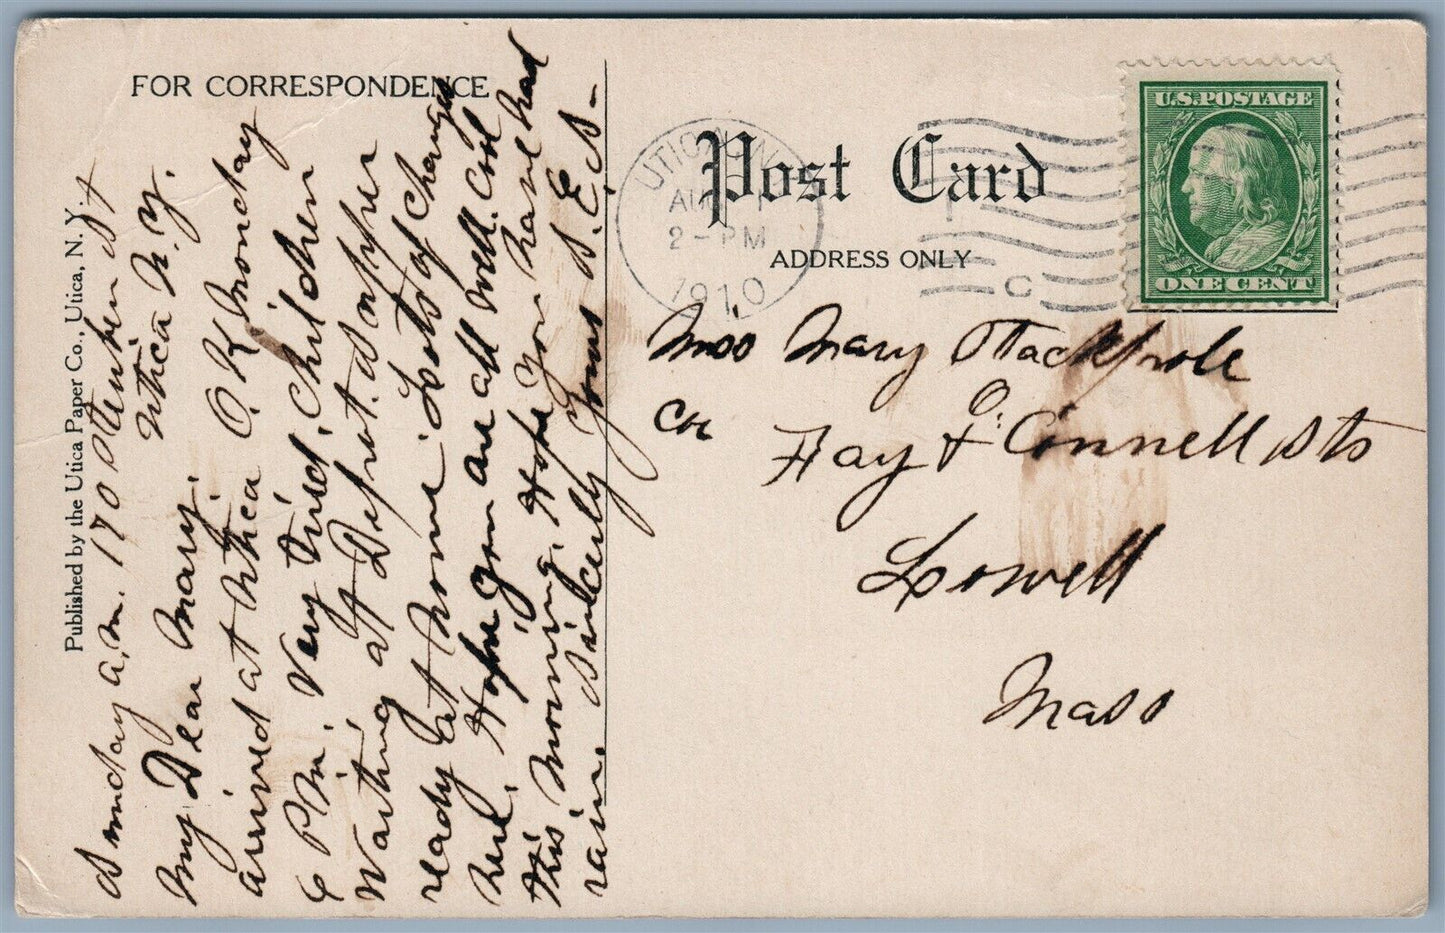 FOR CORRESPONDENCE
Published by the Utica Paper Co., Utica, N. Y.
Sunday a.m. 170 Steuben St
Utica N.Y.
My Dear Mary.
arrived at Utica O.K. Monday
6 P.M. Very tired. Children
Waiting at Depot. Supper
ready at home. Lots of changes
here. Hope you are all well. Cool
this morning. Hope you have had
rain. Sincerely yours S.E.S-
Post Card
ADDRESS ONLY
UTICA, N.Y.
AU
2-PM
1910
C
U.S. POSTAGE
ONE CENT
Miss Mary Stackpole
Co
Fay & O'Connell Sts
Lowell
Mass